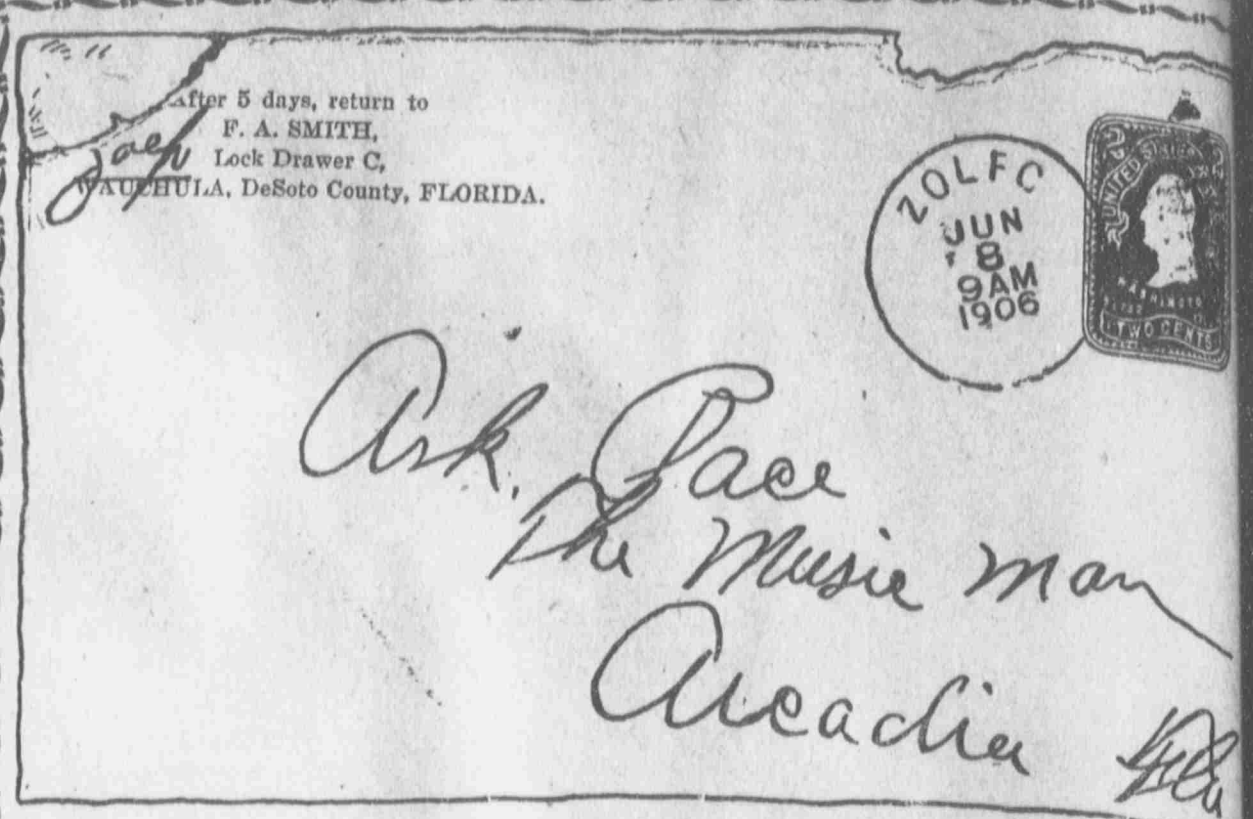 After 5 days, return to
F. A. SMITH,
Lock Drawer C,
WAUCHULA, DeSoto County, FLORIDA.
ZOLFO
JUN
8
9AM
1906
UNITED STATES
WASHINGTON
TWO CENTS
Ask. Pace
The Music Man
Arcadia Fla